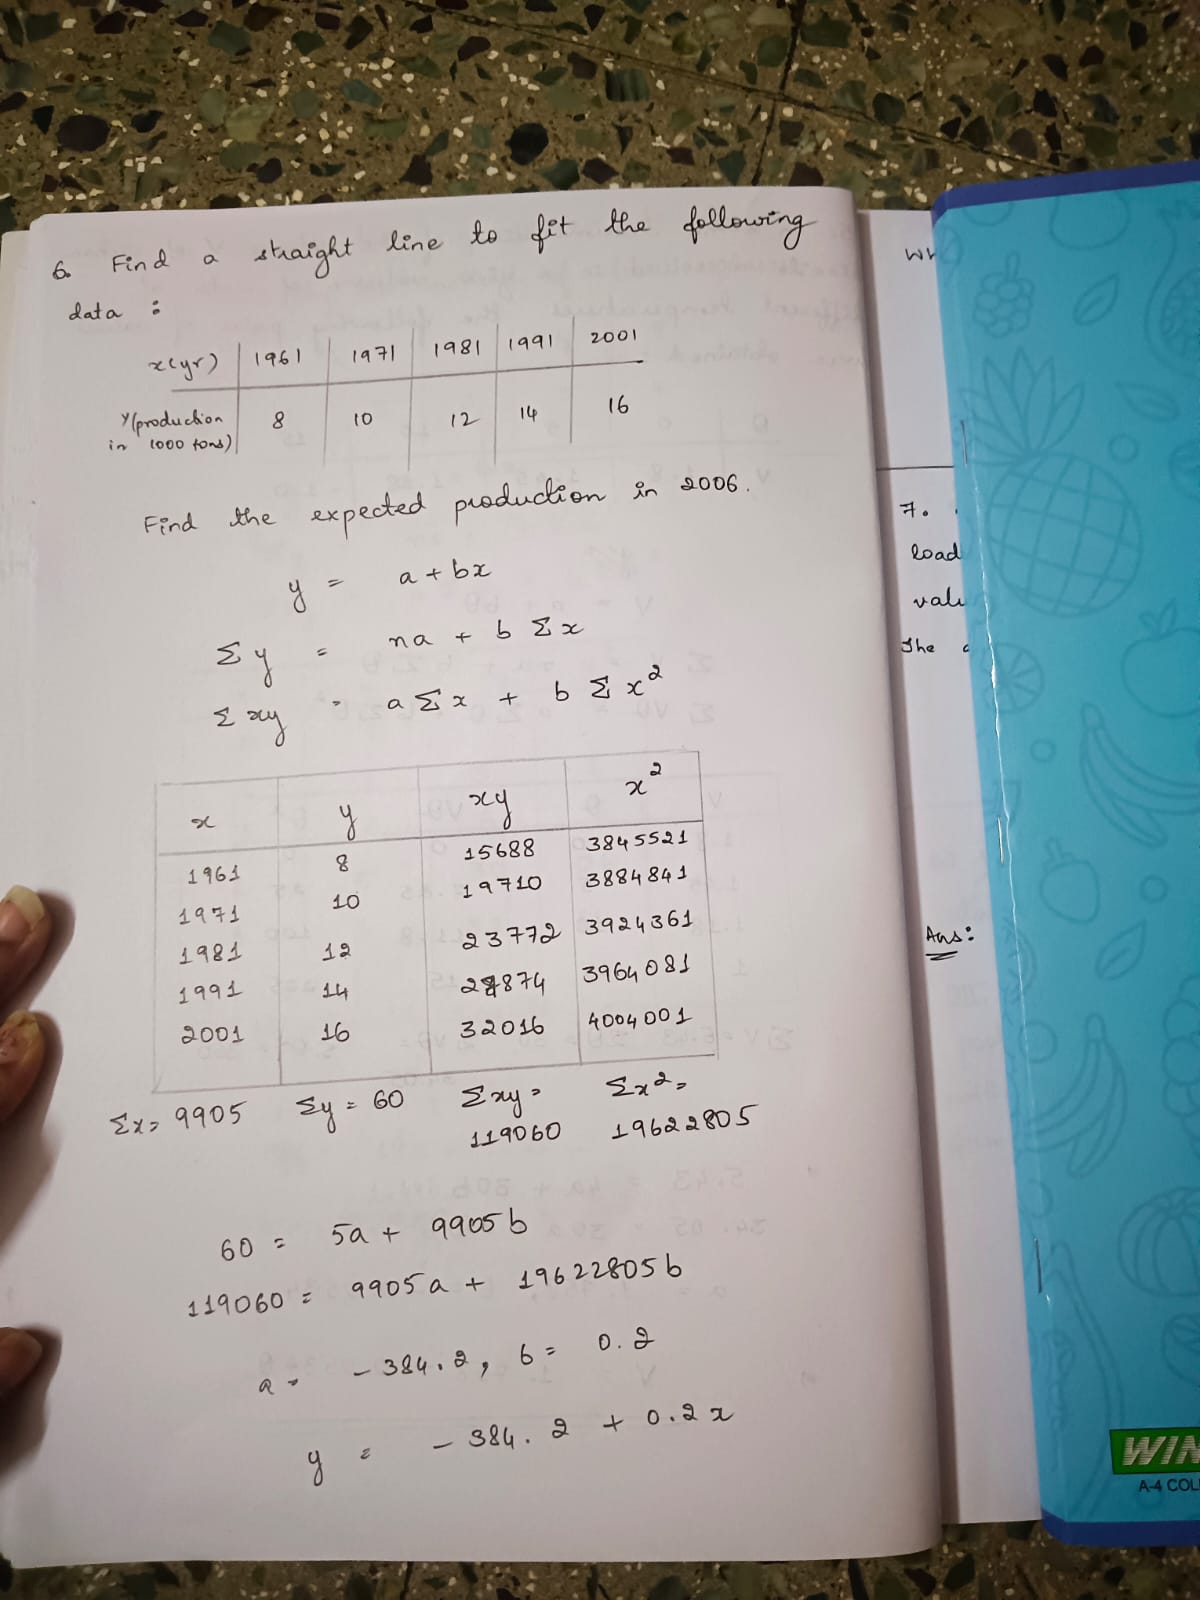 6. Find a straight line to fit the following
data :
x(yr) 1961 1971 1981 1991 2001
y(production in 1000 tons) 8 10 12 14 16
Find the expected production in 2006.
y = a + bx
Σy = na + bΣx
Σxy = aΣx + bΣx²
x y xy x²
1961 8 15688 3845521
1971 10 19710 3884841
1981 12 23772 3924361
1991 14 27874 3964081
2001 16 32016 4004001
Σx= 9905 Σy = 60 Σxy = 119060 Σx² = 19622805
60 = 5a + 9905b
119060 = 9905a + 19622805b
a = -384.2, b = 0.2
y = -384.2 + 0.2x
7.
load
The
Ans:
WIN